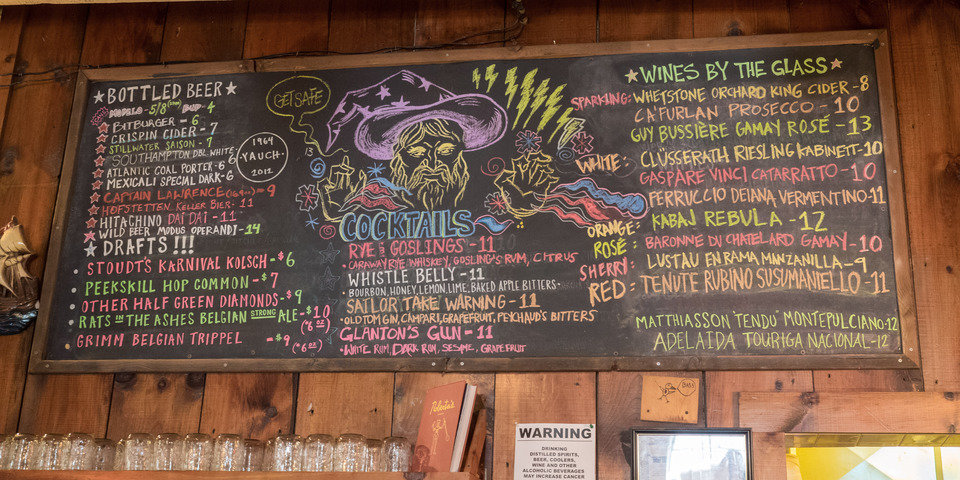 ★ BOTTLED BEER ★
MODELO - 5/8 BUD - 4
BITBURGER - 6
CRISPIN CIDER - 7
STILLWATER SAISON - 7
SOUTHAMPTON DBL WHITE 6
ATLANTIC COAL PORTER - 6
MEXICALI SPECIAL DARK - 6
CAPTAIN LAWRENCE - 9
HOFSTETTEN KELLER BIER - 11
HITACHINO DAI DAI - 11
WILD BEER MODUS OPERANDI - 14
★ DRAFTS !!!
STOUDT'S KARNIVAL KOLSCH - $6
PEEKSKILL HOP COMMON - $7
OTHER HALF GREEN DIAMONDS - $9
RATS IN THE ASHES BELGIAN STRONG ALE - $10
(*6 OZ)
GRIMM BELGIAN TRIPPEL - $9
(*6 OZ)
GET SAFE
1964
YAUCH
2012
COCKTAILS
RYE & GOSLINGS - 11
CARAWAY RYE WHISKEY, GOSLING'S RUM, CITRUS
WHISTLE BELLY - 11
BOURBON, HONEY, LEMON, LIME, BAKED APPLE BITTERS
SAILOR TAKE WARNING - 11
OLD TOM GIN, CAMPARI, GRAPEFRUIT, PEYCHAUD'S BITTERS
GLANTON'S GUN - 11
WHITE RUM, DARK RUM, SESAME, GRAPEFRUIT
★ WINES BY THE GLASS ★
SPARKLING: WHETSTONE ORCHARD KING CIDER - 8
CA'FURLAN PROSECCO - 10
GUY BUSSIÈRE GAMAY ROSÉ - 13
WHITE: CLÜSSERATH RIESLING KABINETT - 10
GASPARE VINCI CATARRATTO - 10
FERRUCCIO DEIANA VERMENTINO - 11
ORANGE: KABAJ REBULA - 12
ROSÉ: BARONNE DU CHATELARD GAMAY - 10
SHERRY: LUSTAU EN RAMA MANZANILLA - 9
RED: TENUTE RUBINO SUSUMANIELLO - 11
MATTHIASSON "TENDU" MONTEPULCIANO - 12
ADELAIDA TOURIGA NACIONAL - 12
Roberta's
WARNING
DRINKING
DISTILLED SPIRITS,
BEER, COOLERS,
WINE AND OTHER
ALCOHOLIC BEVERAGES
MAY INCREASE CANCER